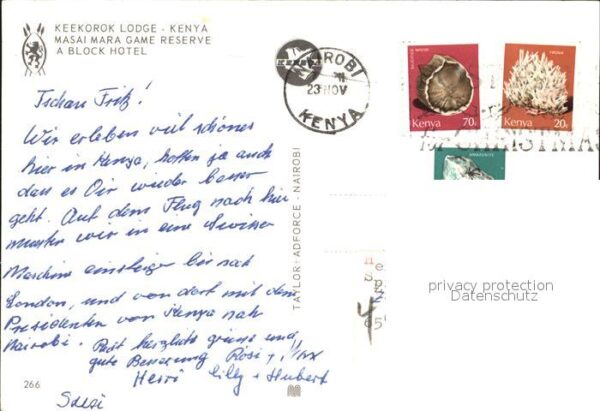 KEEKOROK LODGE - KENYA
MASAI MARA GAME RESERVE
A BLOCK HOTEL
Tschau Fritz!
Wir erleben viel schönes
hier in Kenya, hoffen ja auch
dass es Dir wieder besser
geht. Auf dem Flug nach hier
mussten wir in eine Swisser
Maschine einsteigen bis nach
London, und von dort mit dem
Presidenten von Kenya nach
Nairobi. Recht herzliche grüsse und
gute Besserung Rösi
Heiri Lilly + Hubert
Susi
266
TAYLOR-ADFORCE - NAIROBI
KENYA
NAIROBI
23 NOV
KENYA
Kenya 70c
Kenya 20c
CHRISTMA
AMAZONITE
privacy protection
Datenschutz